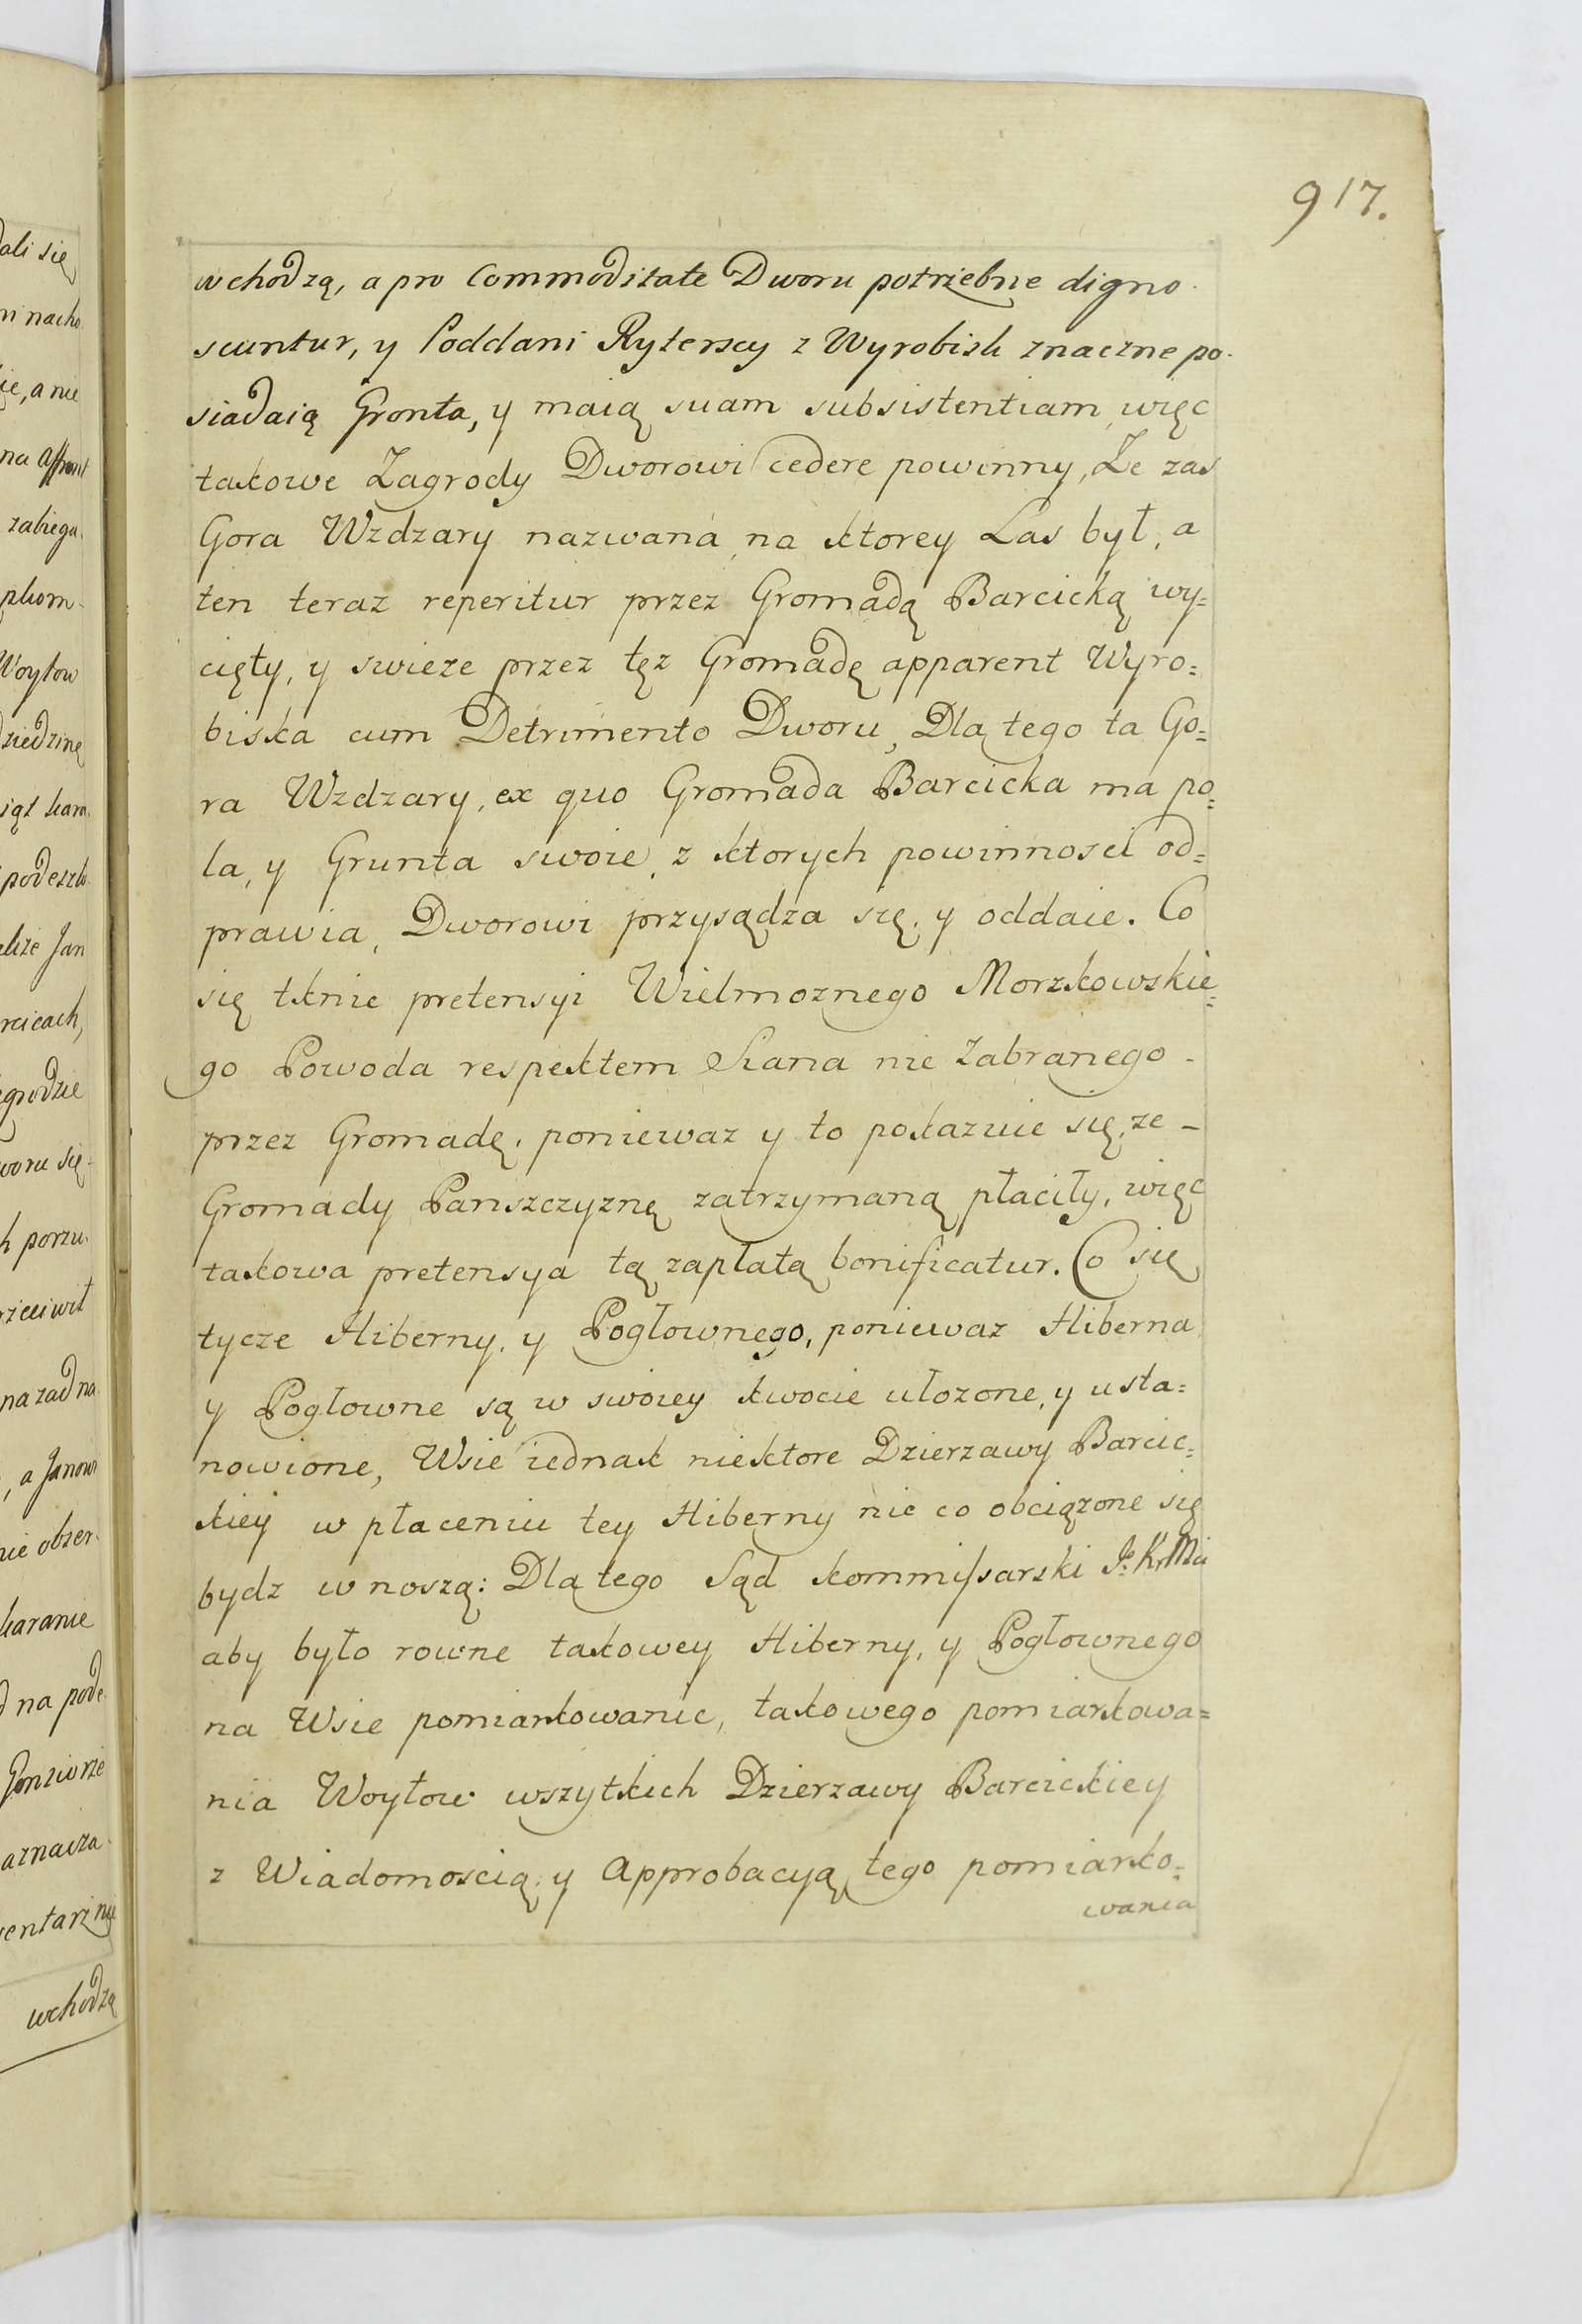 917.
wchodzą, a pro Commoditate Dworu potrzebne digno-
scuntur, y Poddani Ryterscy z Wyrobisk znaczne po-
siadaią Gronta, y maią suam subsistentiam, więc
takowe Zagrody Dworowi cedere powinny, Ze zas
Gora Wzdzary nazwana, na ktorey Las był, a
ten teraz reperitur przez Gromadą Barcicką wy=
cięty, y swieze przez tęz Gromadę apparent Wyro=
biska cum Detrimento Dworu, Dla tego ta Go=
ra Wzdzary, ex quo Gromada Barcicka ma po=
la, y Grunta swoie, z ktorych powinnosci od=
prawia, Dworowi przysądza się, y oddaie. Co
się tknie pretensyi Wielmoznego Morzkowskie=
go Powoda respektem Siana nie Zabranego -
przez Gromadę, poniewaz y to pokazuie się, ze -
Gromady Panszczyznę zatrzymaną płaciły, więc
takowa pretensya tą zapłatą bonificatur. Co się
tycze Hiberny, y Pogłownego, poniewaz Hiberna
y Pogłowne są w swoiey kwocie ułozone, y usta=
nowione, Wsie iednak niektore Dzierzawy Barcic=
kiey w płaceniu tey Hiberny nie co obciązone się
bydz wnoszą: Dla tego Sąd kommissarski J: K: Mci
aby było rowne takowey Hiberny, y Pogłownego
na Wsie pomiarkowanie, takowego pomiarkowa=
nia Woytow wszytkich Dzierzawy Barcickiey
z Wiadomoscią, y Approbacyą tego pomiarko=
wania
ali się
nacho
a nie
na affront
zabiega
Woytow
dziedzinę
kara
podeszło
Jan
porzu
a Janowi
obser
karanie
na pode
wchodzą